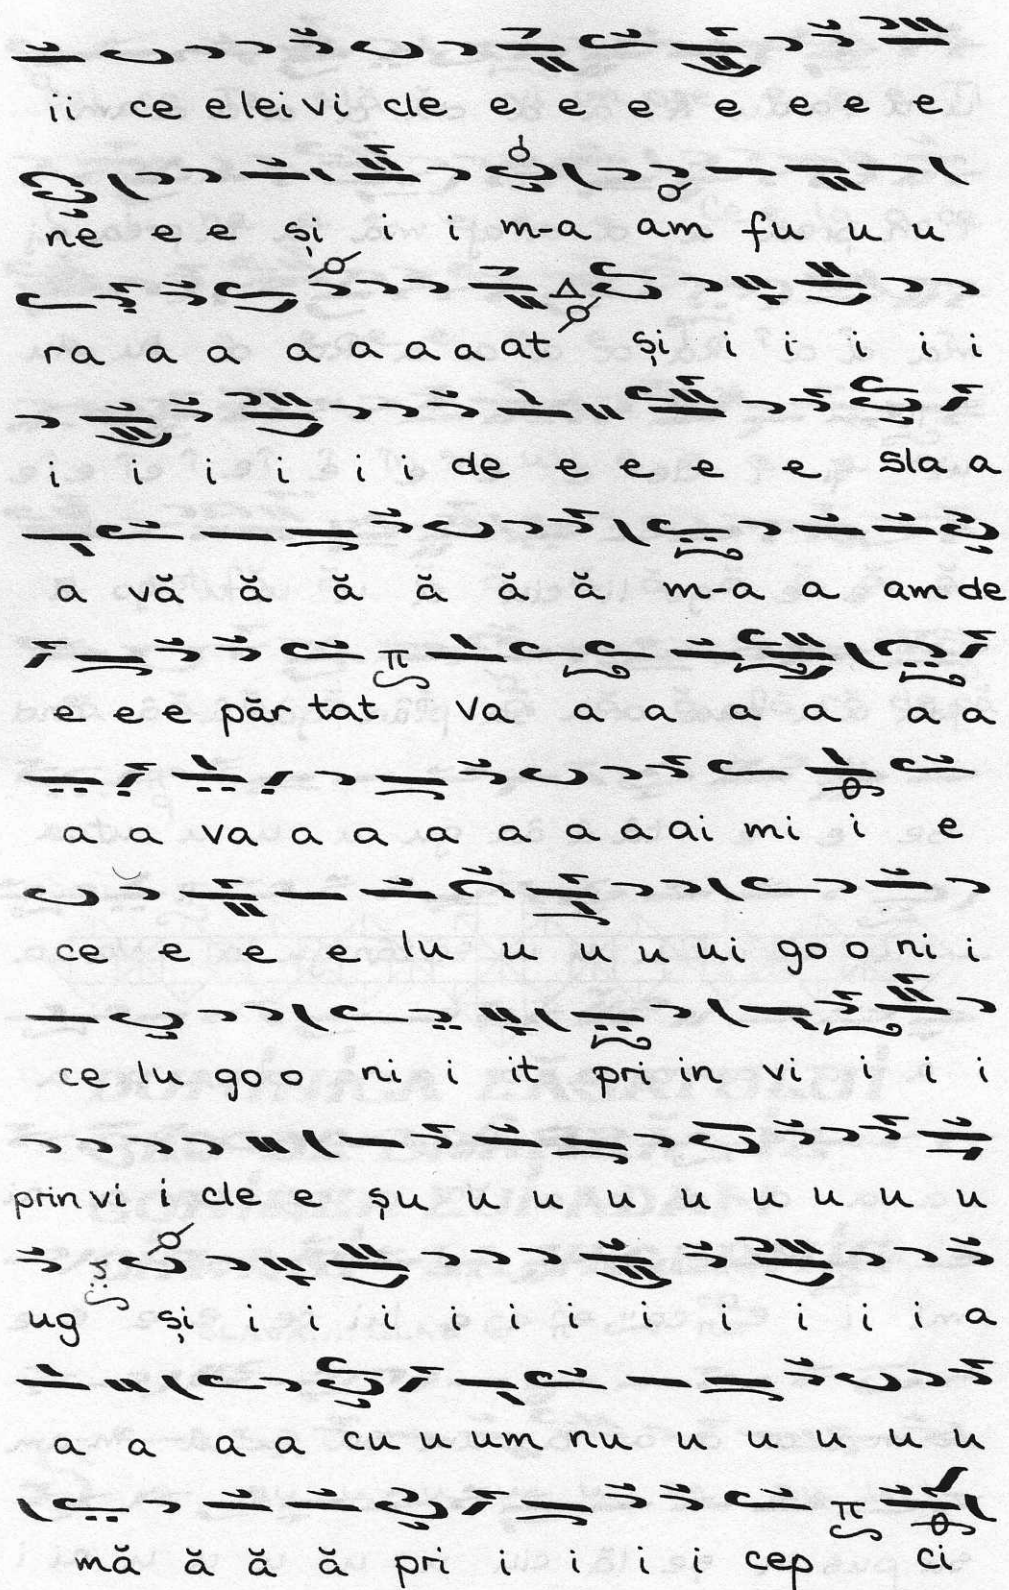 ii ce e lei vi cle e e e e e e e
ne e e și i i m-a am fu u u
ra a a a a a a at și i i i i i
i i i i i i de e e e e Sla a
a vă ă ă ă ă ă m-a a am de
e e e păr tat Va a a a a a a
a a va a a a a a a ai mi i e
ce e e e lu u u u ui go o ni i
ce lu go o ni i it pri in vi i i i
prin vi i cle e șu u u u u u u u u
ug și i i i i i i i i i i i a
a a a a cu u um nu u u u u u
mă ă ă ă pri i i i i cep ci